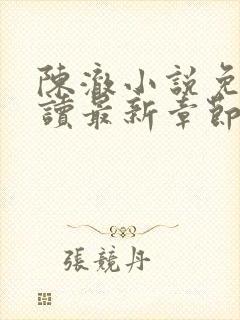 陳澈小說免
讀最新章節
張競丹